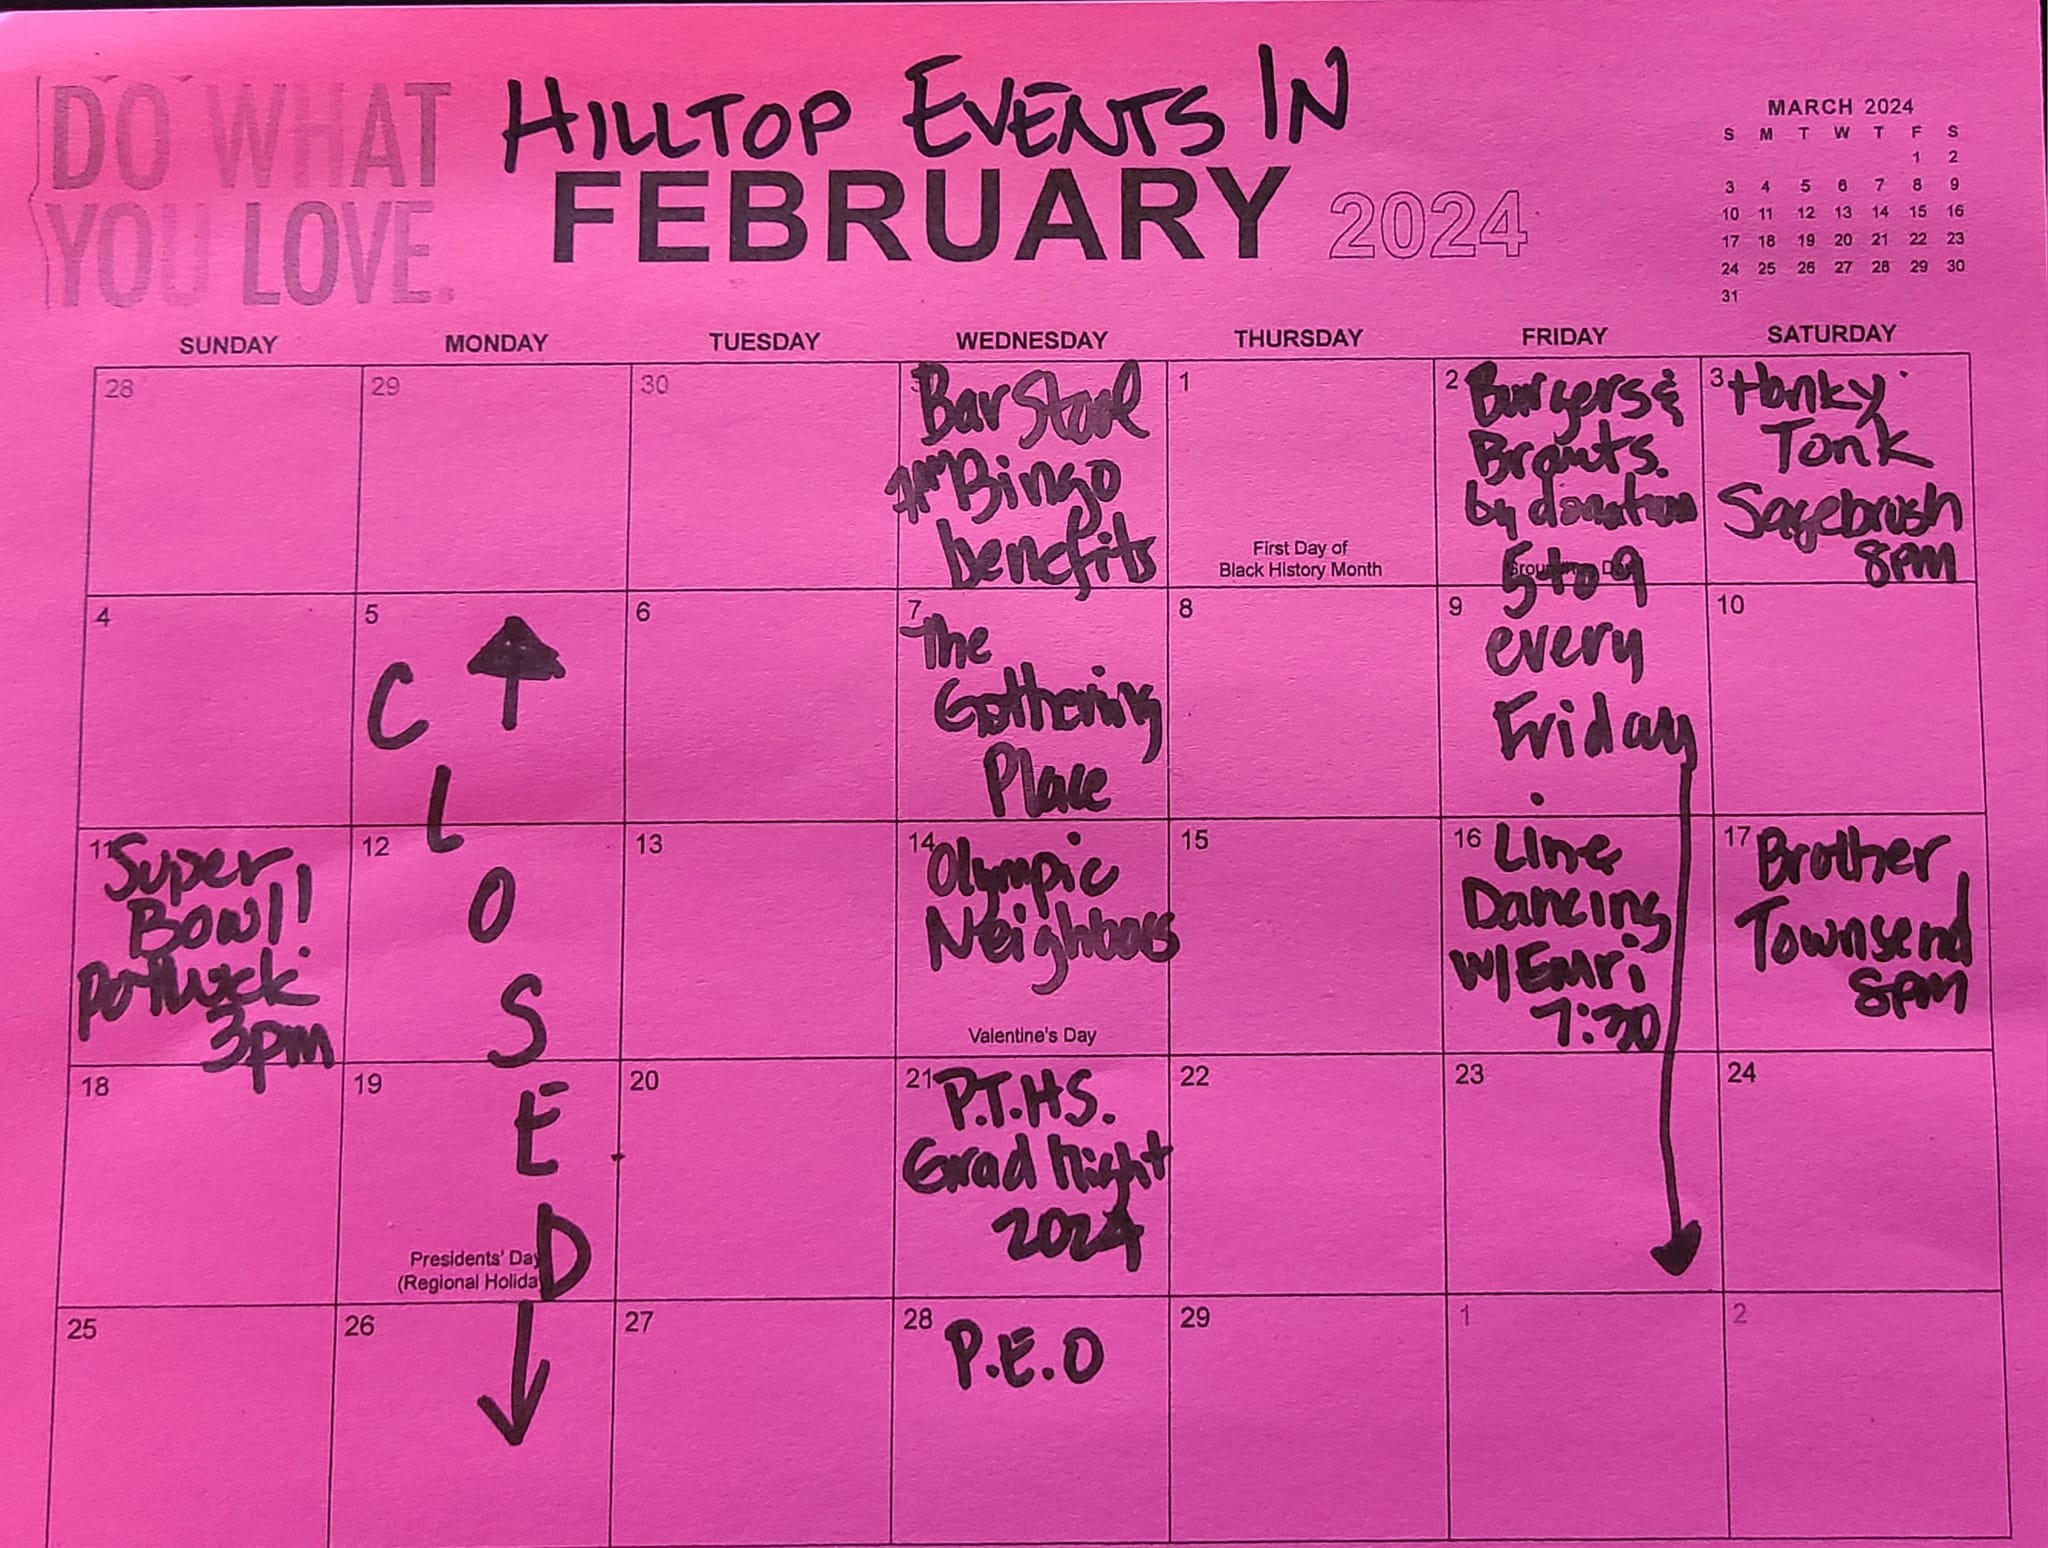 DO WHAT
YOU LOVE.
HILLTOP EVENTS IN
FEBRUARY 2024
MARCH 2024
S M T W T F S
1 2
3 4 5 6 7 8 9
10 11 12 13 14 15 16
17 18 19 20 21 22 23
24 25 26 27 28 29 30
31
SUNDAY MONDAY TUESDAY WEDNESDAY THURSDAY FRIDAY SATURDAY
28
29
30
Bar Stool
7PM Bingo
benefits
1
First Day of
Black History Month
2 Burgers &
Brauts.
by donation
5 to 9
every
Friday
3 Honky
Tonk
Sagebrush
8PM
4
5
CLOSED
6
7 The
Gathering
Place
8
9
10
11 Super
Bowl!
Potluck
3pm
12
13
14 Olympic
Neighbors
Valentine's Day
15
16 Line
Dancing
W/ Emri
7:30
17 Brother
Townsend
8pm
18
19
Presidents' Day
(Regional Holida
20
21 P.T.H.S.
Grad Night
2024
22
23
24
25
26
27
28 P.E.O
29
1
2